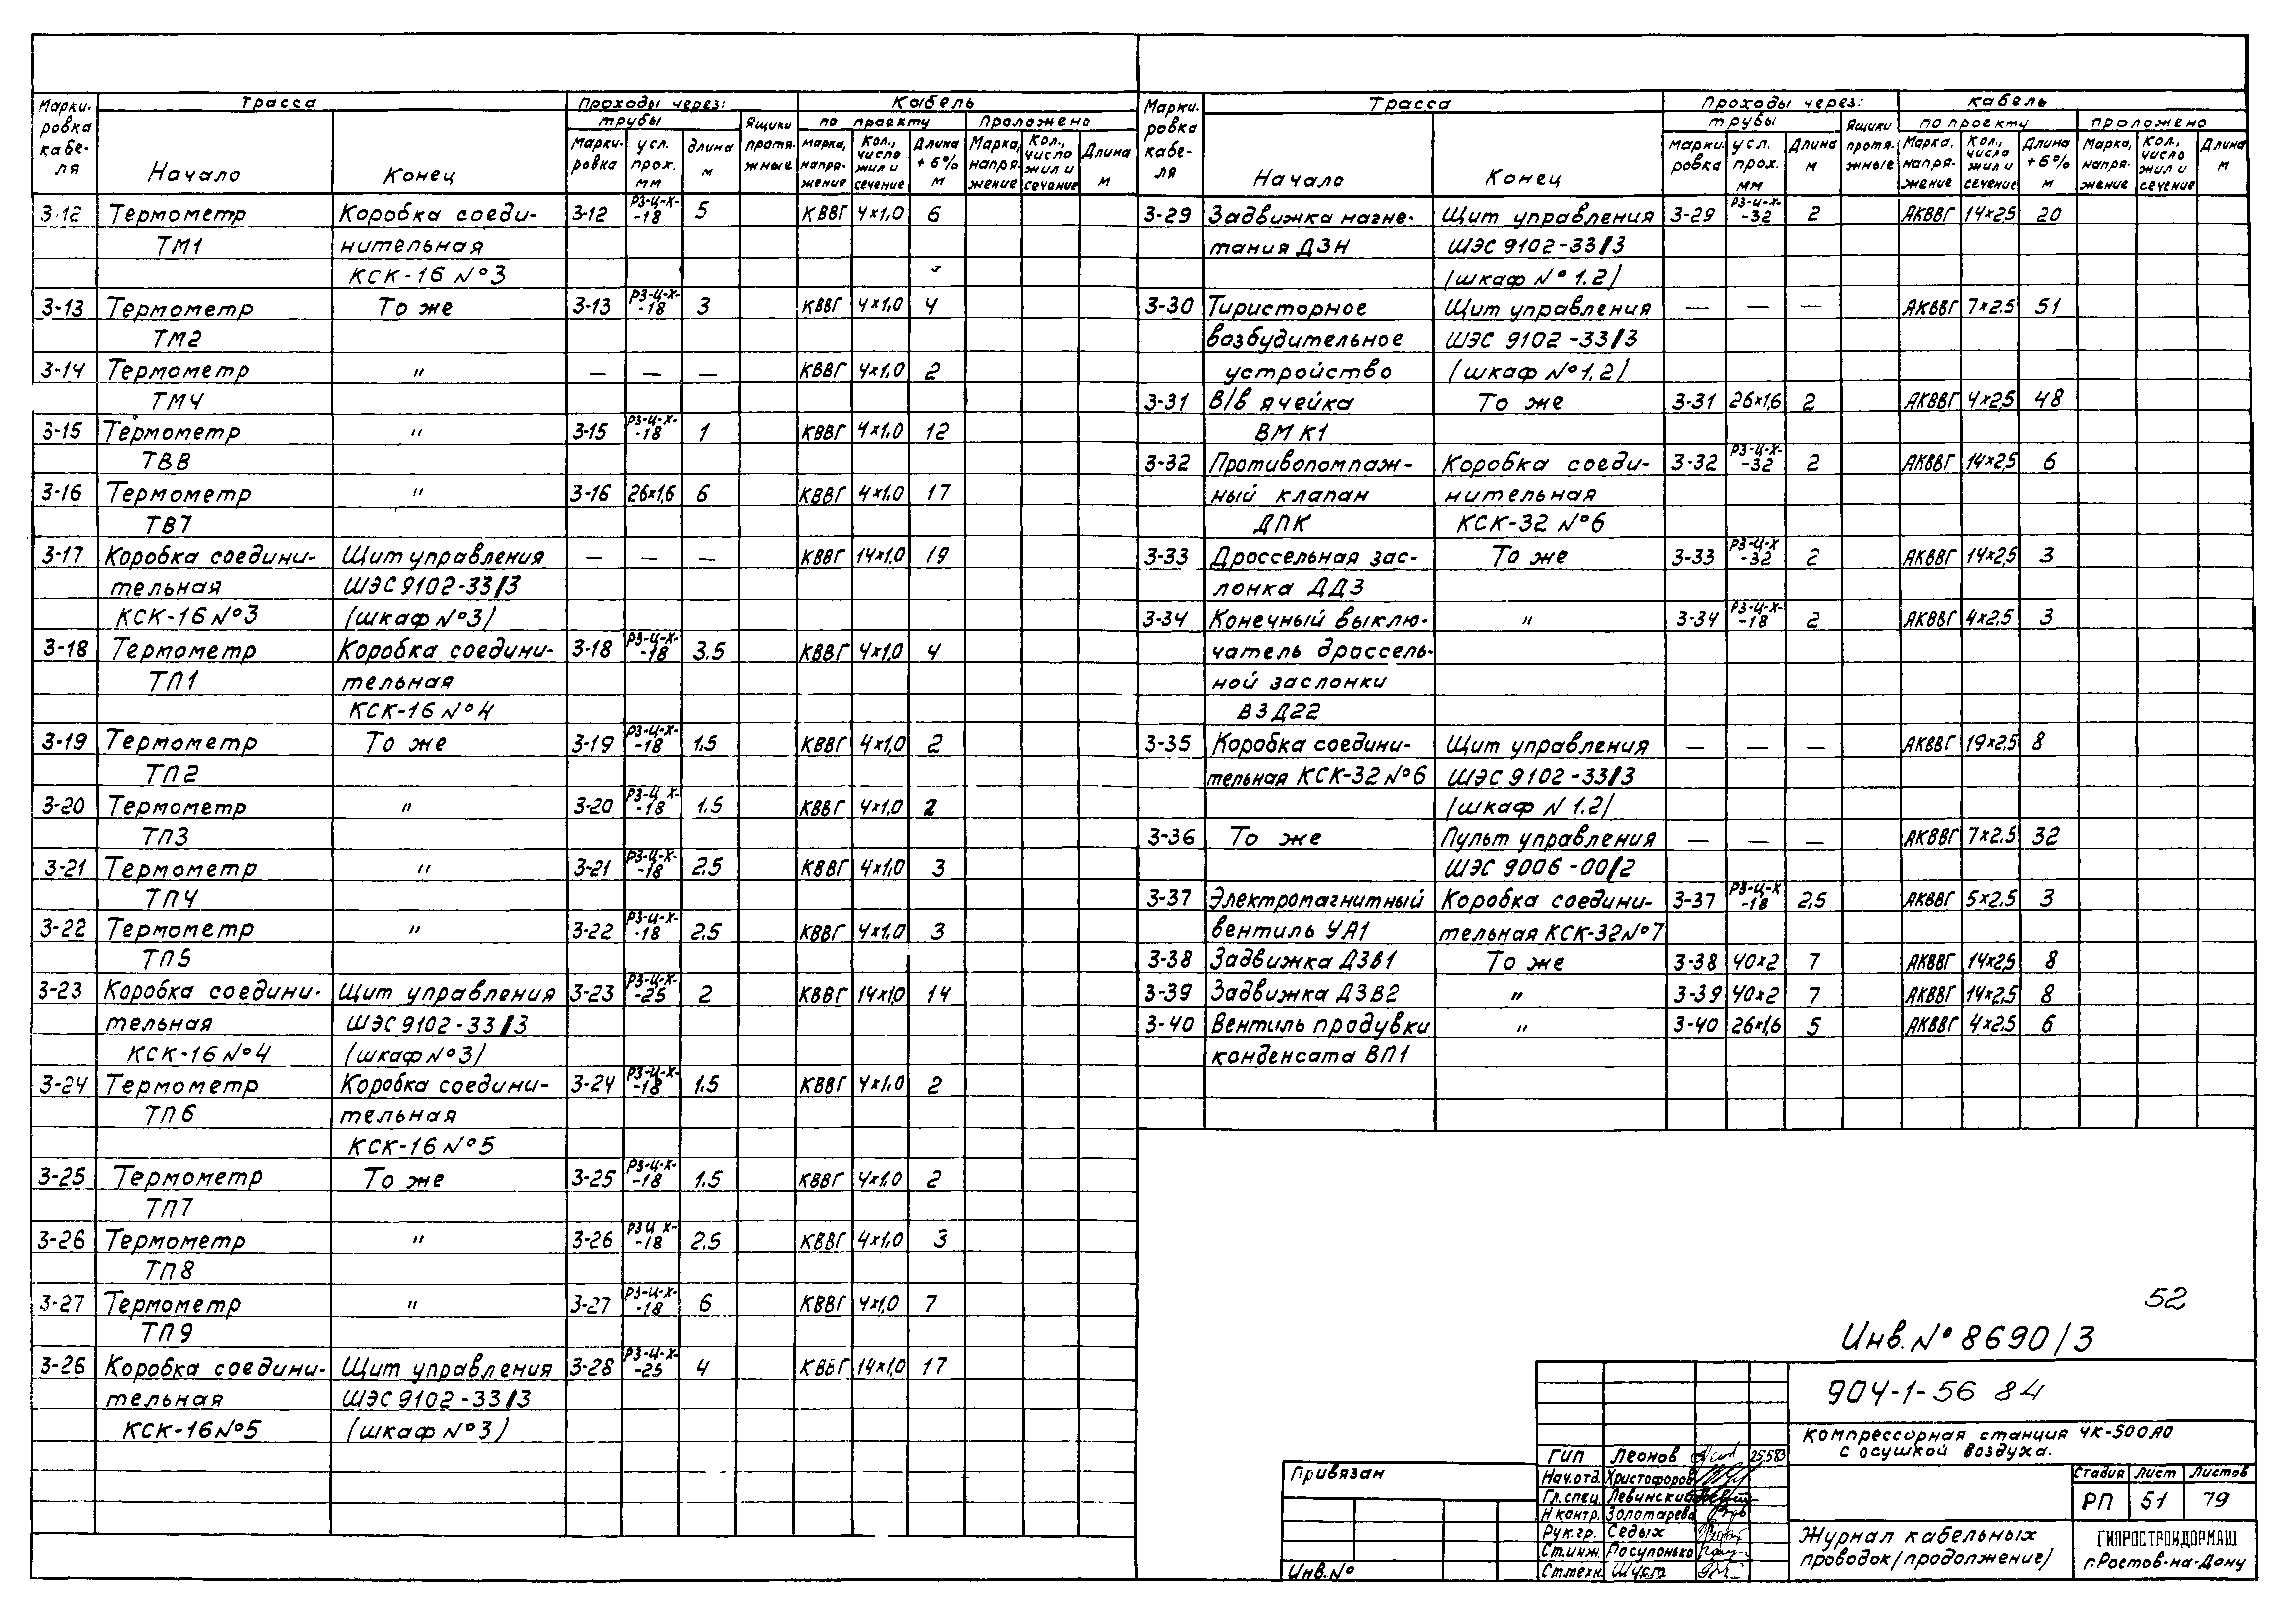 Марки- ровка кабе- ля | Трасса | Проходы через: | Кабель
трубы | Ящики протя- жные | по проекту | проложено
Начало | Конец | Марки- ровка | усл. прох. мм | длина м | марка, напря- жение | Кол., число жил и сечение | Длина + 6% м | Марка, напря- жение | Кол., число жил и сечение | Длина м
3-12 Термометр Коробка соеди- 3-12 РЗ-Ц-Х- -18 5 КВВГ 4×1,0 6
ТМ1 нительная
КСК-16 №3
3-13 Термометр То же 3-13 РЗ-Ц-Х- -18 3 КВВГ 4×1,0 4
ТМ2
3-14 Термометр " — — — КВВГ 4×1,0 2
ТМ4
3-15 Термометр " 3-15 РЗ-Ц-Х- -18 1 КВВГ 4×1,0 12
ТВВ
3-16 Термометр " 3-16 26×1,6 6 КВВГ 4×1,0 17
ТВ7
3-17 Коробка соедини- Щит управления — — — КВВГ 14×1,0 19
тельная ШЭС 9102-33/3
КСК-16 №3 (шкаф №3)
3-18 Термометр Коробка соедини- 3-18 РЗ-Ц-Х- -18 3.5 КВВГ 4×1,0 4
ТП1 тельная
КСК-16 №4
3-19 Термометр То же 3-19 РЗ-Ц-Х- -18 1.5 КВВГ 4×1,0 2
ТП2
3-20 Термометр " 3-20 РЗ-Ц Х- -18 1.5 КВВГ 4×1,0 2
ТП3
3-21 Термометр " 3-21 РЗ-Ц-Х- -18 2.5 КВВГ 4×1,0 3
ТП4
3-22 Термометр " 3-22 РЗ-Ц-Х- -18 2.5 КВВГ 4×1,0 3
ТП5
3-23 Коробка соедини- Щит управления 3-23 РЗ-Ц-Х- -25 2 КВВГ 14×1,0 14
тельная ШЭС 9102-33/3
КСК-16 №4 (шкаф №3)
3-24 Термометр Коробка соедини- 3-24 РЗ-Ц-Х- -18 1.5 КВВГ 4×1,0 2
ТП6 тельная
КСК-16 №5
3-25 Термометр То же 3-25 РЗ-Ц-Х- -18 1.5 КВВГ 4×1,0 2
ТП7
3-26 Термометр " 3-26 РЗ Ц Х- -18 2,5 КВВГ 4×1,0 3
ТП8
3-27 Термометр " 3-27 РЗ-Ц-Х- -18 6 КВВГ 4×1,0 7
ТП9
3-26 Коробка соедини- Щит управления 3-28 РЗ-Ц-Х- -25 4 КВВГ 14×1,0 17
тельная ШЭС 9102-33/3
КСК-16 №5 (шкаф №3)
Марки- ровка кабе- ля | Трасса | Проходы через: | кабель
трубы | Ящики протя- жные | по проекту | проложено
Начало | Конец | марки- ровка | усл. прох. мм | Длина м | Марка, напря- жение | Кол., число жил и сечение | Длина +6% м | Марка, напря- жение | Кол., число жил и сечение | Длина м
3-29 Задвижка нагне- Щит управления 3-29 РЗ-Ц-Х- -32 2 АКВВГ 14×2,5 20
тания ДЗН ШЭС 9102-33/3
(шкаф № 1.2)
3-30 Тиристорное Щит управления — — — АКВВГ 7×2.5 51
возбудительное ШЭС 9102-33/3
устройство (шкаф №1,2)
3-31 В/в ячейка То же 3-31 26×1,6 2 АКВВГ 4×2,5 48
ВМ К1
3-32 Противопомпаж- Коробка соеди- 3-32 РЗ-Ц-Х- -32 2 АКВВГ 14×2,5 6
ный клапан нительная
ДПК КСК-32 №6
3-33 Дроссельная зас- То же 3-33 РЗ-Ц-Х -32 2 АКВВГ 14×2,5 3
лонка ДДЗ
3-34 Конечный выклю- " 3-34 РЗ-Ц-Х- -18 2 АКВВГ 4×2,5 3
чатель дроссель-
ной заслонки
ВЗД22
3-35 Коробка соедини- Щит управления — — — АКВВГ 19×2.5 8
тельная КСК-32 №6 ШЭС 9102-33/3
(шкаф N 1.2)
3-36 То же Пульт управления — — — АКВВГ 7×2.5 32
ШЭС 9006-00/2
3-37 Электромагнитный Коробка соедини- 3-37 РЗ-Ц-Х -18 2,5 АКВВГ 5×2,5 3
вентиль УА1 тельная КСК-32№7
3-38 Задвижка ДЗВ1 То же 3-38 40×2 7 АКВВГ 14×2,5 8
3-39 Задвижка ДЗВ2 " 3-39 40×2 7 АКВВГ 14×2,5 8
3-40 Вентиль продувки " 3-40 26×1,6 5 АКВВГ 4×2.5 6
конденсата ВП1
52
Инв. № 8690/3
904-1-56 84
Компрессорная станция ЧК-500А0
с осушкой воздуха.
Привязан
Инв.№
ГИП Леонов 25.5.83
Нач.отд. Христофоров
Гл.спец. Левинский
Н контр. Золотарева
Рук.гр. Седых
Ст.инж. Посупонько
Ст.техн. Шуст
Стадия Лист Листов
РП 51 79
Журнал кабельных
проводок (продолжение)
ГИПРОСТРОЙДОРМАШ
г.Ростов-на-Дону